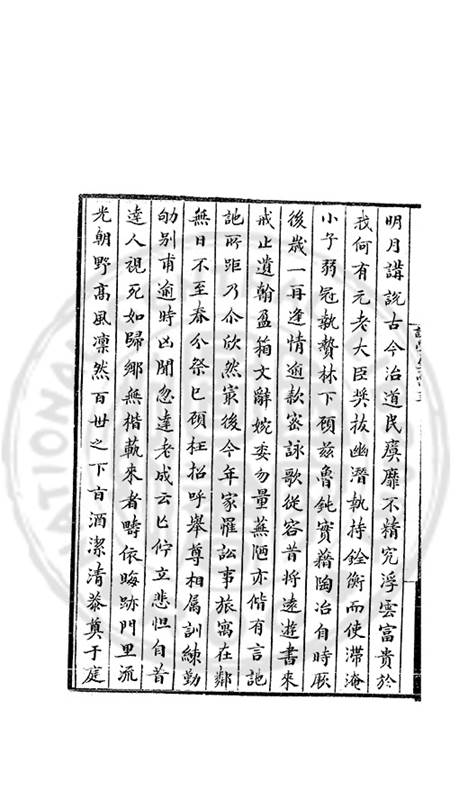 明月講說古今治道民瘼靡不精究浮雲富貴於
我何有元老大臣奬拔幽潛執持銓衡而使滯淹
小子弱冠執贄林下顧兹魯鈍實藉陶冶自時厥
後歲一再逢情逾款密詠歌從容昔將遠遊書來
戒止遺翰盈箱文辭婉委勿量蕪陋亦偕有言訑
訑所距乃尒欣然冣後今年家罹訟事旅寓在鄰
無日不至春分祭已顧枉招呼舉尊相屬訓練勤
劬别甫逾時凶聞忽達老成云亾佇立悲怛自昔
達人視死如歸鄉無楷軌來者疇依晦跡門里流
光朝野高風凛然百世之下百酒潔清恭奠于庭